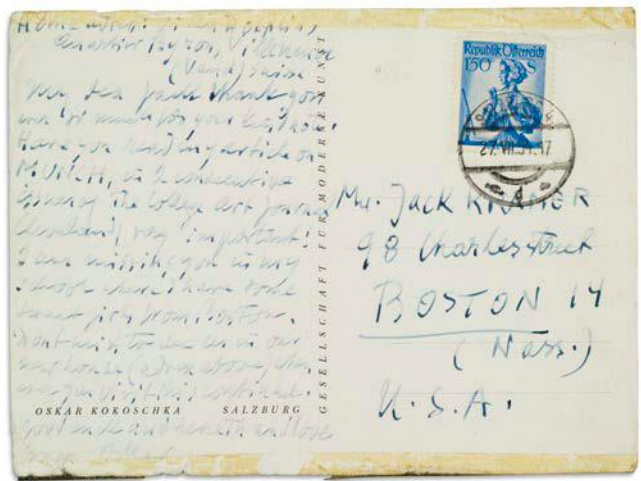 Home
Quartier Byron, Villeneuve
(Vaud) Suisse
My dear Jack thank you
ever so much for your
Have you read my article on
MUNCH, in 2 consecutive
issues of The College Art Journal
Cleveland, very important!
I am missing you in my
school where I have some
from Boston.
Don't miss to see us in our
new house (adress above) when
ever you visit this continent.
and health and love
OSKAR KOKOSCHKA SALZBURG
GESELLSCHAFT FÜR MODERNE KUNST
Republik Österreich
150 S
27.VII.54.17
d
Mr. Jack KRAMER
98 Charles street
BOSTON 14
(Mass.)
U.S.A.